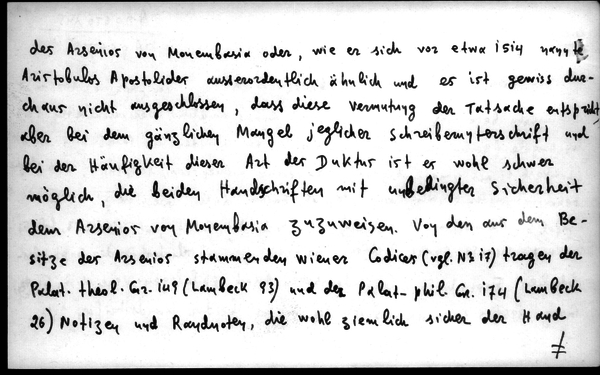 des Arsenios von Monembasia oder, wie er sich vor etwa 1514 nannte
Aristobulos Apostolides ausserordentlich ähnlich und es ist gewiss dur-
chaus nicht ausgeschlossen, dass diese Vermutung der Tatsache entspricht,
aber bei dem gänzlichen Mangel jeglicher Schreiberunterschrift und
bei der Häufigkeit dieser Art des Duktus ist es wohl schwer
möglich, die beiden Handschriften mit unbedingter Sicherheit
dem Arsenios von Monembasia zuzuweisen. Von den aus dem Be-
sitze des Arsenios stammenden wiener Codices (vgl. N3 17) tragen der
Palat. theol. Gr. 149 (Lambeck 93) und der Palat. phil. Gr. 174 (Lambeck
26) Notizen und Randnoten, die wohl ziemlich sicher der Hand